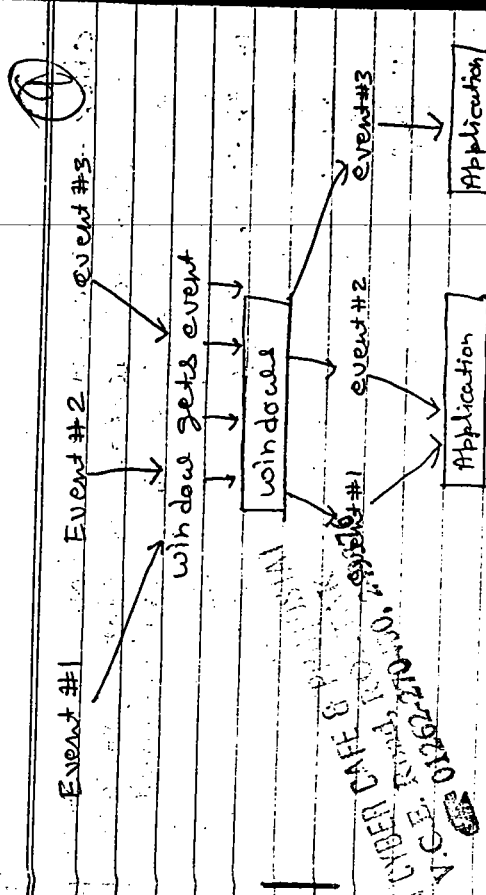 Event #1 Event #2 event #3
window gets event
windows
event #1 event #2 event #3
Application Application
CYBER CAFE &
V.C.E. Road,
01262-270